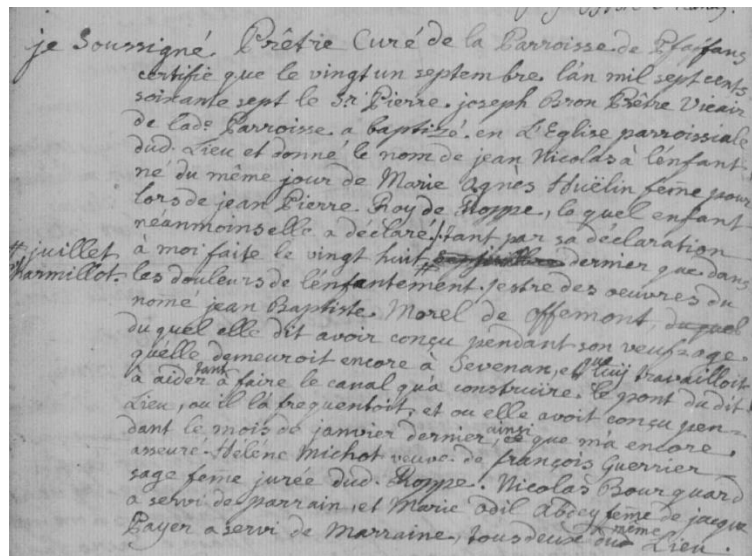 je Soussigné Prêtre Curé de la Parroisse de Pfaffans
certifie que le vingt un septembre lán mil sept cents
soixante sept le Sr Pierre joseph Bron Prêtre Vicair
de lade Parroisse a baptizé en L'Eglise parroissiale
dud. Lieu et donné le nom de jean Nicolas à lénfant
né du même jour de Marie Agnès Huëlin feme pour
lors de jean Pierre Roy de Roppe, le quel enfant
néanmoins elle a déclaré, tant par sa déclaration
# juillet
Karmillot.
à moi faite le vingt huit # dernier que dans
les douleurs de lénfantement. Jestre des oeuvres du
nomé jean Baptiste Morel de offemont, duquel
du quel elle dit avoir conçu pendant son veufzage
qu'elle demeuroit encore à Sevenan, et que luij travailloit
à aider tant à faire le canal qu'a construire le pont du dit
Lieu, ou il la frequentoit, et ou elle avoit conçu pen-
dant le mois de janvier dernier, ainsi que ma encore
asseuré Hélène Michot veuve de françois Guerrier
sage feme jurée dud. Roppe. Nicolas Bourquard
a servi de parrain, et Marie odil Abdey feme de jacque
Payer a servi de Marraine, tous deux du même Lieu.